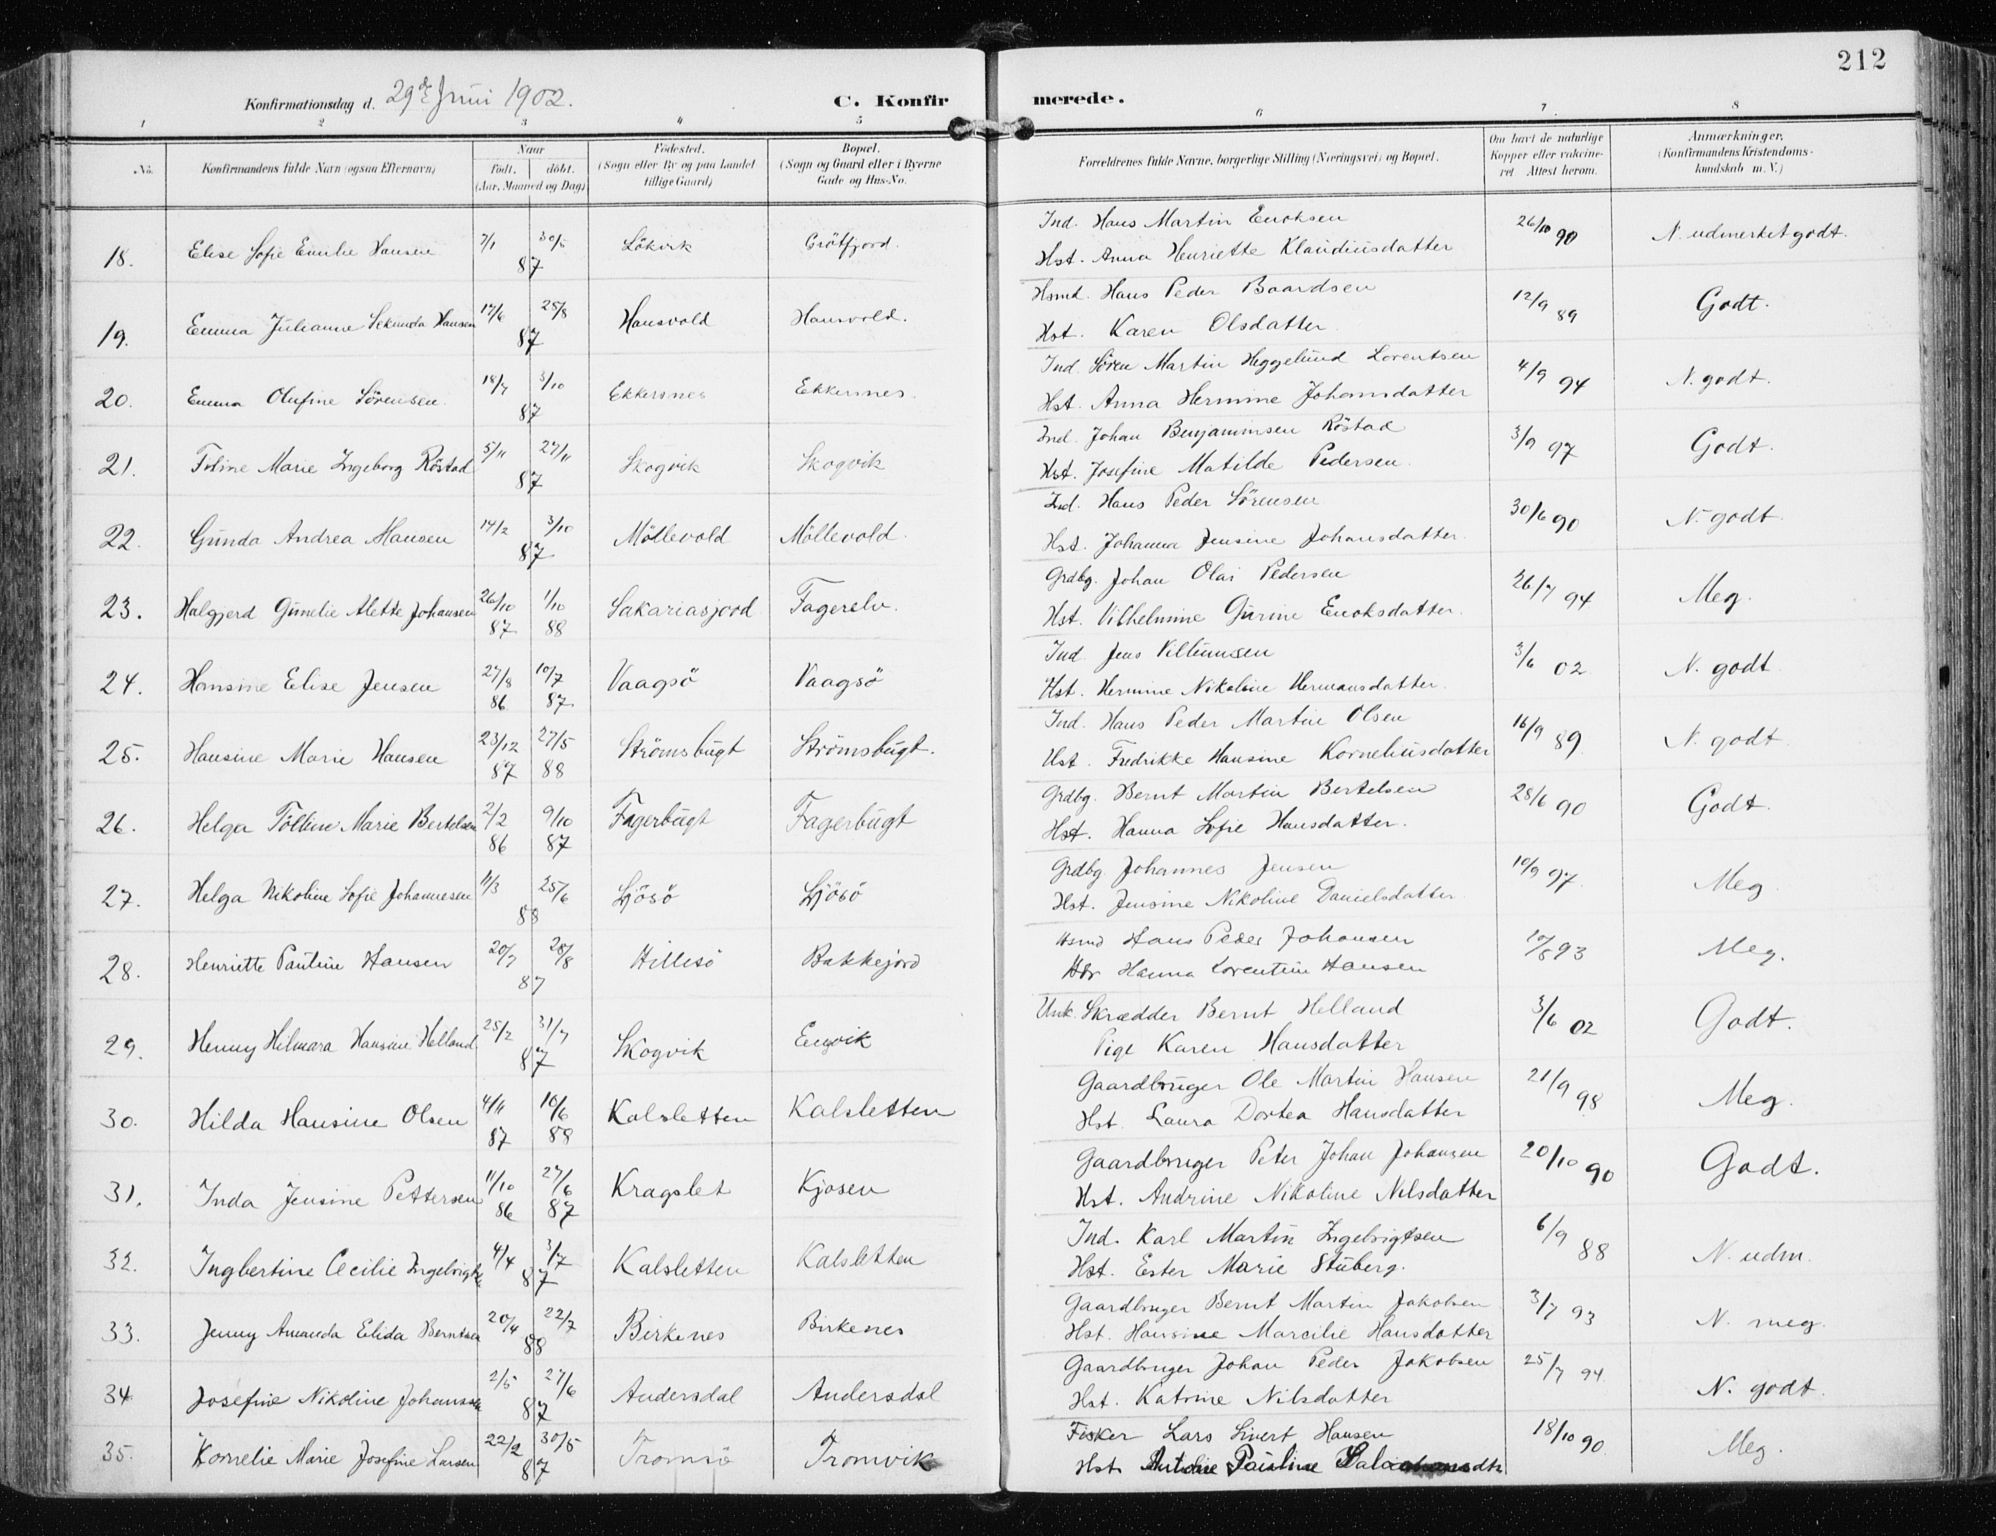 212
Konfirmationsdag d. 29de Juni 1902.
C. Konfirmerede.
1 2 3 4 5 6 7 8
No. Konfirmandens fulde Navn (ogsaa Efternavn) Naar födt. döbt. (Aar, Maaned og Dag) Födested. (Sogn eller By og paa Landet tillige Gaard) Bopæl. (Sogn og Gaard eller i Byerne Gade og Hus-No. Forældrenes fulde Navne, borgerlige Stilling (Næringsvei) og Bopæl. Om havt de naturlige Kopper eller vakcineret Attest herom. Anmærkninger. (Konfirmandens Kristendomskundskab m. V.)
18. Elise Sofie Emilie Hansen 7/1 30/5 87 Lökvik Grötfjord. Ind. Hans Martin Enoksen 26/10 90 N. udmerket godt.
Hst. Anna Henriette Klaudiusdatter
19. Emma Julianne Sekunda Hansen 17/6 25/8 87 Hansvold Hansvold. Hsmd. Hans Peder Baardsen 12/9 89 Godt.
Hst. Karen Olsdatter
20. Emma Olufine Sörensen. 18/7 3/10 87 Ekkersnes Ekkersnes. Ind. Sören Martin Heggelund Lorentsen 4/9 94 N. godt.
Hst. Anna Hermine Johannsdatter
21. Toline Marie Ingeborg Röstad 5/11 27/11 87 Skogvik Skogvik Ind. Johan Benjaminsen Röstad 3/9 97 Godt.
Hst. Josefine Matilde Pedersen.
22. Gunda Andrea Hansen 14/2 3/10 87 Möllevold Möllevold. Ind. Hans Peder Sörensen 30/6 90 N. godt
Hst. Johanna Jensine Johansdatter.
23. Halgjerd Gunelie Alette Johansen 26/10 87 1/10 88 Sakariasjord Fagerelv. Grdbg. Johan Olai Pedersen 26/7 94 Meg.
Hst. Vilhelmine Gurine Enoksdatter.
24. Hansine Elise Jensen 27/8 86 10/7 87 Vaagsö Vaagsö Ind. Jens Villumsen 3/6 02 N. godt
Hst. Hermine Nikoline Hermansdatter.
25. Hansine Marie Hansen 23/12 87 27/5 88 Strömsbugt Strömsbugt. Ind. Hans Peder Martin Olsen 16/9 89 N. godt
Hst. Fredrikke Hansine Korneliusdatter
26. Helga Tölline Marie Bertelsen 2/2 86 9/10 87 Fagerbugt Fagerbugt Grdbg. Bernt Martin Bertelsen 28/6 90 Godt.
Hst. Hanna Sofie Hansdatter.
27. Helga Nikoline Sofie Johannesen 11/3 25/6 88 Ljösö Ljösö Grdbg Johannes Jensen 10/9 97. Meg
Hst. Jensine Nikoline Danielsdatter
28. Henriette Pauline Hansen 20/7 28/8 87 Hillesö Bakkejord Hsmd Hans Peder Johansen 10/8 93 Meg.
Hanna Lorentine Hansen
29. Henny Hilmara Hansine Helland. 25/2 31/7 87 Skogvik Engvik Unk. Skrædder Bernt Helland 3/6 02 Godt.
Pige Karen Hansdatter
30. Hilda Hansine Olsen 4/11 87 16/6 88 Kalsletten Kalsletten Gaardbruger Ole Martin Hansen 21/9 98 Meg.
Hst. Laura Dortea Hansdatter
31. Inda Jensine Pettersen 11/10 86 27/6 87 Kragslet Kjosen Gaardbruger Peter Johan Johansen 20/10 90 Godt.
Hst. Andrine Nikoline Nilsdatter
32. Ingbertine Cecilie Ingebrigts 4/4 3/7 87 Kalsletten Kalsletten Ind. Karl Martin Ingebrigtsen 6/9 88 N. udm.
Hst. Ester Marie Stuberg.
33. Jenny Amanda Elida Berntsen 20/4 22/7 88 Birkenes Birkenes Gaardbruger Bernt Martin Jakobsen 3/7 93 N. meg.
Hst. Hansine Marcilie Hansdatter
34 Josefine Nikoline Johansen 2/5 27/6 87 Andersdal Andersdal Gaardbruger Johan Peder Jakobsen 25/7 94 N. godt.
Hst. Katrine Nilsdatter
35. Kornelie Marie Josefine Larsen 22/2 30/5 87 Tromsö Tromvik Fisker Lars Sivert Hansen 18/10 90 Meg.
Hst. Pauline